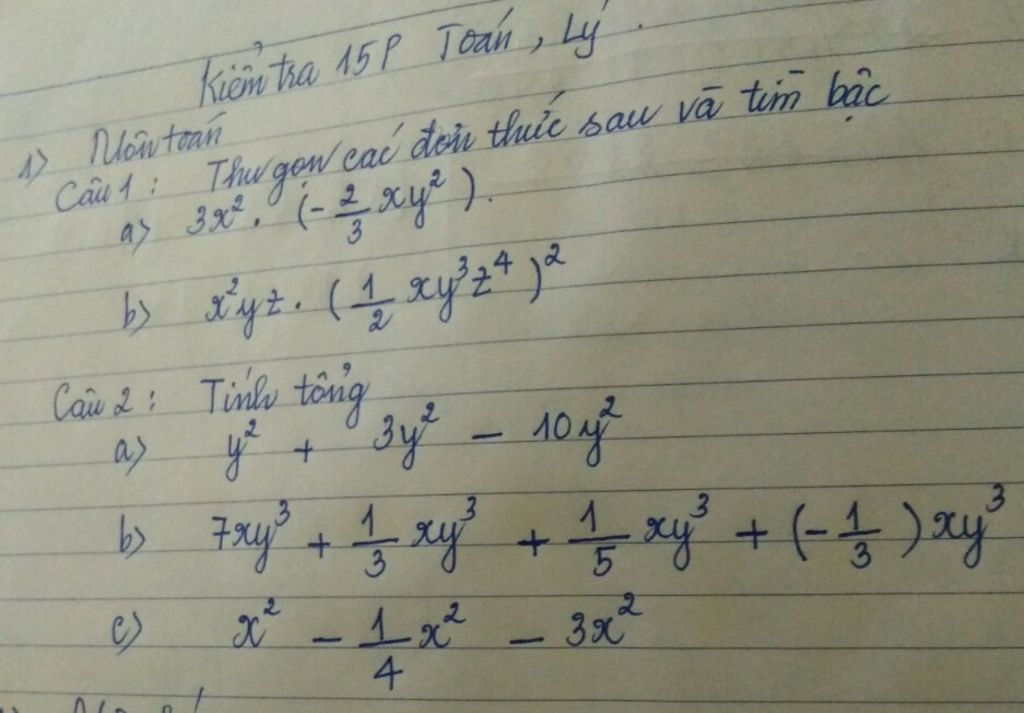 Kiểm tra 15P Toán, Lý.
1) Môn toán
Câu 1: Thu gọn các đơn thức sau và tìm bậc
a) 3x². (-2/3 xy²).
b) x²yz. (1/2 xy³z⁴)²
Câu 2: Tính tổng
a) y² + 3y² - 10y²
b) 7xy³ + 1/3 xy³ + 1/5 xy³ + (-1/3) xy³
c) x² - 1/4 x² - 3x²